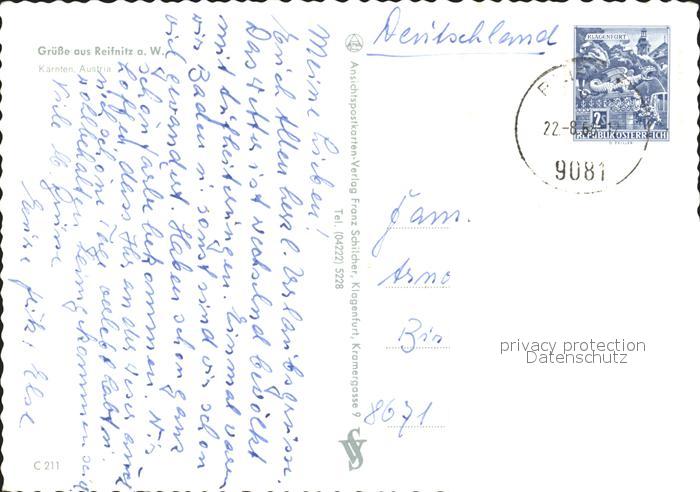 Grüße aus Reifnitz a. W.
Kärnten, Austria
Meine Lieben!
Euch Allen herzl. Urlaubsgrüsse.
Das Wetter ist wechselnd bewölkt
mit Aufheiterungen. Einmal waren
wir Baden, sonst sind wir schon
viel gewandert. Haben schon ganz
schön Farbe bekommen. Wir
hoffen dass Ihr an der Weser auch
schöne Tage verlebt habt u.
wohlbehalten heimgekommen seid
Viele lb. Grüsse
Fritz Else
C 211
Ansichtspostkarten-Verlag Franz Schilcher, Klagenfurt, Kramergasse 9
Tel. (04222) 5228
Deutschland
KLAGENFURT
2
REPUBLIK ÖSTERREICH
22.-8.6
9081
Fam.
Arno
8671
privacy protection
Datenschutz